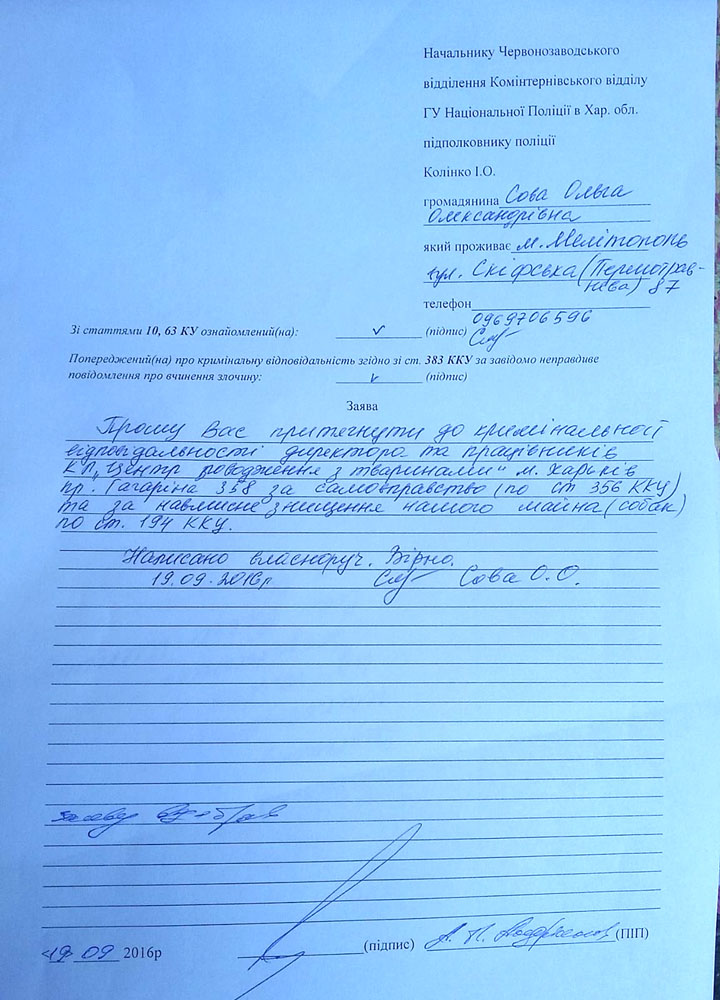 Начальнику Червонозаводського
відділення Комінтернівського відділу
ГУ Національної Поліції в Хар. обл.
підполковнику поліції
Колінко І.О.
громадянина Сова Ольга
Олександрівна
який проживає м. Мелітополь
вул. Скіфська (Першотрав-
нева) 87
телефон
0969706596
Зі статтями 10, 63 КУ ознайомлений(на): (підпис)
Попереджений(на) про кримінальну відповідальність згідно зі ст. 383 ККУ за завідомо неправдиве
повідомлення про вчинення злочину: (підпис)
Заява
Прошу Вас притягнути до кримінальної
відповідальності директора та працівників
КП „Центр поводження з тваринами" м. Харьків
пр. Гагаріна 358 за самоправство (по ст 356 ККУ)
та за навмисне знищення нашого майна (собак)
по ст. 194 ККУ.
Написано власноруч. Вірно.
19.09.2016р Сова О.О.
заяву
19 09 2016р (підпис) А. П. (ПІП)